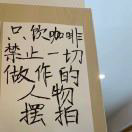 只饮咖啡
禁止一切
做作的
人物
摆拍